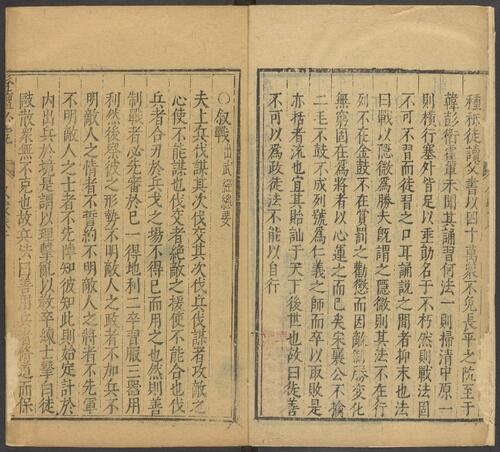 種祗徒讀父書以四十萬衆不免長平之阬至于
韓彭衛霍輩未聞其誦習何法一則掃清中原一
則橫行塞外皆足以垂勛名于不朽然則戰法固
不可不習而徒習之口耳誦說之間者抑末也法
曰戰以隱微為勝夫既謂之隱微則其法不在行
列不在金鼓不在賞罰之勸懲而因敵制勝變化
無窮固在為將者以心運之而已矣宋襄公不擒
二毛不鼓不成列號為仁義之師而卒以取敗是
亦括者流也宜其貽訕于天下後世也故曰徒善
不可以為政徒法不能以自行
○叙戰 出武經總要
夫上兵伐謀其次伐交其次伐兵伐謀者攻敵之
心使不能謀也伐交者絶敵之援使不能合也伐
兵者合刃於兵戈之塲不得已而用之也然則善
制戰者必先審於己一得地利二卒習服三器用
利然後察彼之形勢不明敵人之政者不加兵不
明敵人之情者不誓約不明敵人之將者不先軍
不明敵人之士者不先陣知彼知此則始定計於
內出兵於境是謂以理擊亂以教卒練士擊白徒
敺散衆無不克也故兵法曰善用兵者修道而保
登壇必究